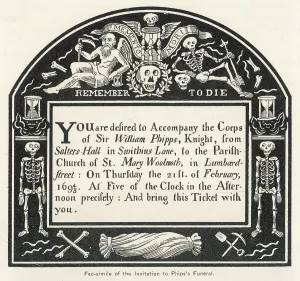 MEMENTO MORI
REMEMBER TO DIE
YOU are desired to Accompany the Corps
of Sir William Phipps, Knight, from
Salters-Hall in Swithins Lane, to the Parish-
Church of St. Mary Woolnoth, in Lumbard-
street: On Thursday the 21st. of February,
169⅘. At Five of the Clock in the After-
noon precisely: And bring this Ticket with
you.
Fac-simile of the Invitation to Phips's Funeral.